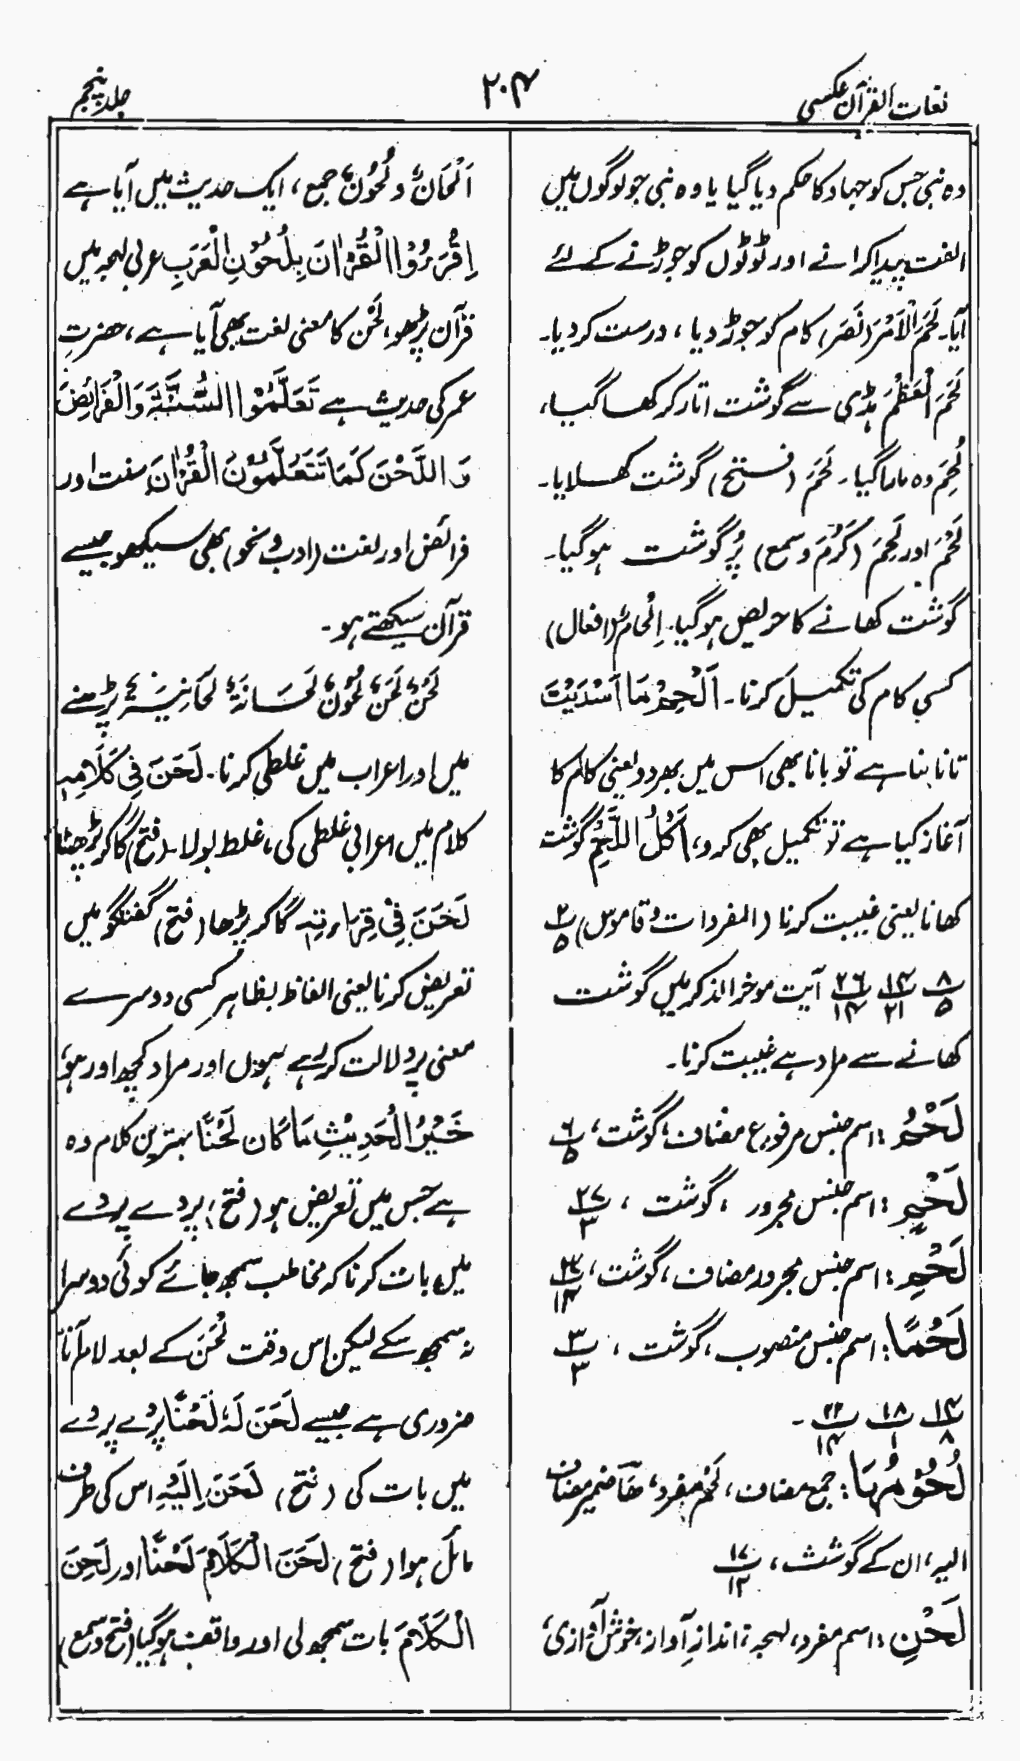 لغات القرآن عکسی
۲۰۴
جلد پنجم
وہ نبی جس کو جہاد کا حکم دیا گیا یا وہ نبی جو لوگوں میں
الفت پیدا کرانے اور ٹوٹوں کو جوڑنے کے لئے
آیا۔ لَحَمَ الْاَمْرَ (نَصَرَ) کام کو جوڑ دیا، درست کر دیا۔
لَحَمَ الْعَظْمَ ہڈی سے گوشت اتار کر کھا گیا،
لُحِمَ وہ مارا گیا۔ لَحَمَ (فتح) گوشت کھلایا۔
لَحُمَ اور لَحِمَ (کَرُمَ و سمع) پُر گوشت ہو گیا۔
گوشت کھانے کا حریص ہو گیا۔ اِلْحَامٌ (افعال)
کسی کام کی تکمیل کرنا۔ اَلْحِمْ مَا اَسْدَیْتَ
تانا بنا ہے تو بانا بھی اس میں بھر دو یعنی کام کا
آغاز کیا ہے تو تکمیل بھی کرو، اَکْلُ اللَّحْمِ گوشت
کھانا یعنی غیبت کرنا (المفردات و قاموس) ۲/۵
۸/۵ ۱۴/۲۱ ۲۶/۱۴ آیت موخر الذکر میں گوشت
کھانے سے مراد ہے غیبت کرنا۔
لَحْمُ: اسم جنس مرفوع مضاف، گوشت، ۶/۵
لَحْمٍ: اسم جنس مجرور، گوشت، ۲۷/۳
لَحْمِ: اسم جنس مجرور مضاف، گوشت، ۲۶/۱۴
لَحْمًا: اسم جنس منصوب، گوشت، ۳/۳
۱۴/۸ ۱۸/۱ ۲۲/۱۴ ۔
لُحُوْمُہَا: جمع مضاف، لَحْمٌ مفرد، ھَا ضمیر مضاف
الیہ، ان کے گوشت، ۱۷/۱۲
لَحْنِ: اسم مفرد، لہجہ، اندازِ آواز، خوش آوازی،
اَلْحَانٌ و لُحُوْنٌ جمع، ایک حدیث میں آیا ہے
اِقْرَءُوْا الْقُرْاٰنَ بِلُحُوْنِ الْعَرَبِ عربی لہجہ میں
قرآن پڑھو، لَحْن کا معنی لغت بھی آیا ہے، حضرتِ
عمر کی حدیث ہے تَعَلَّمُوْا السُّنَّۃَ وَالْفَرَائِضَ
وَ اللَّحْنَ کَمَا تَتَعَلَّمُوْنَ الْقُرْاٰنَ سنت اور
فرائض اور لغت (ادب و نحو) بھی سیکھو جیسے
قرآن سیکھتے ہو۔
لَحْنٌ، لَحَنٌ، لُحُوْنٌ، لَحَانَۃٌ، لَحَانِیَۃٌ پڑھنے
میں اور اعراب میں غلطی کرنا۔ لَحَنَ فِیْ کَلَامِہٖ
کلام میں اعرابی غلطی کی، غلط بولا۔ (فتح) گا کر پڑھنا
لَحَنَ فِیْ قِرَاءَتِہٖ گا کر پڑھا (فتح) گفتگو میں
تعریض کرنا یعنی الفاظ بظاہر کسی دوسرے
معنی پر دلالت کر رہے ہوں اور مراد کچھ اور ہو،
خَیْرُ الْحَدِیْثِ مَا کَانَ لَحْنًا بہترین کلام وہ
ہے جس میں تعریض ہو (فتح) پردے پردے
میں بات کرنا کہ مخاطب سمجھ جائے کوئی دوسرا
نہ سمجھ سکے لیکن اس وقت لَحَنَ کے بعد لام آنا
ضروری ہے جیسے لَحَنَ لَہٗ لَحْنًا پردے پردے
میں بات کی (فتح) لَحَنَ اِلَیْہِ اس کی طرف
مائل ہوا (فتح) لَحَنَ الْکَلَامَ لَحْنًا اور لَحِنَ
الْکَلَامَ بات سمجھ لی اور واقف ہو گیا (فتح و سمع)